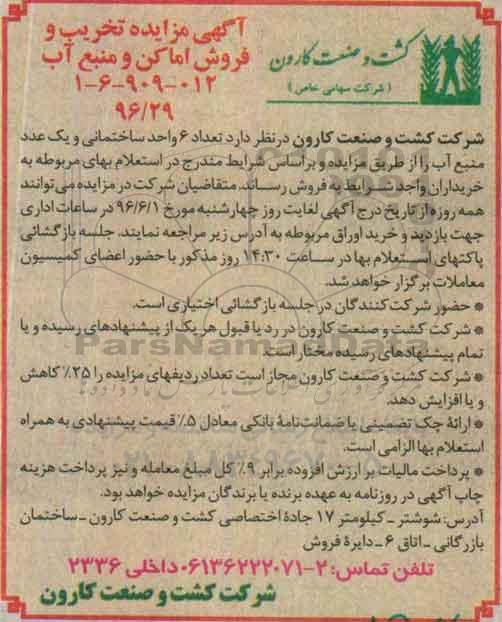 آگهی مزایده تخریب و
فروش اماکن و منبع آب
۱-۶-۹۰۹-۰۱۲
۹۶/۲۹
کشت و صنعت کارون
(شرکت سهامی خاص)
شرکت کشت و صنعت کارون در نظر دارد تعداد ۶ واحد ساختمانی و یک عدد
منبع آب را از طریق مزایده و براساس شرایط مندرج در استعلام بهای مربوطه به
خریداران واجد شرایط به فروش رساند. متقاضیان شرکت در مزایده می‌توانند
همه روزه از تاریخ درج آگهی لغایت روز چهارشنبه مورخ ۹۶/۶/۱ در ساعات اداری
جهت بازدید و خرید اوراق مربوطه به آدرس زیر مراجعه نمایند. جلسه بازگشائی
پاکتهای استعلام بها در ساعت ۱۴:۳۰ روز مذکور با حضور اعضای کمیسیون
معاملات برگزار خواهد شد.
* حضور شرکت کنندگان در جلسه بازگشائی اختیاری است.
* شرکت کشت و صنعت کارون در رد یا قبول هر یک از پیشنهادهای رسیده و یا
تمام پیشنهادهای رسیده مختار است.
* شرکت کشت و صنعت کارون مجاز است تعداد ردیفهای مزایده را ۲۵٪ کاهش
و یا افزایش دهد.
* ارائه چک تضمینی یا ضمانت‌نامهٔ بانکی معادل ۵٪ قیمت پیشنهادی به همراه
استعلام بها الزامی است.
* پرداخت مالیات بر ارزش افزوده برابر ۹٪ کل مبلغ معامله و نیز پرداخت هزینه
چاپ آگهی در روزنامه به عهده برنده یا برندگان مزایده خواهد بود.
آدرس: شوشتر ـ کیلومتر ۱۷ جادهٔ اختصاصی کشت و صنعت کارون ـ ساختمان
بازرگانی ـ اتاق ۶ ـ دایرهٔ فروش
تلفن تماس: ۲-۰۶۱۳۶۲۲۲۰۷۱ داخلی ۲۳۳۶
شرکت کشت و صنعت کارون
ParsNamadData